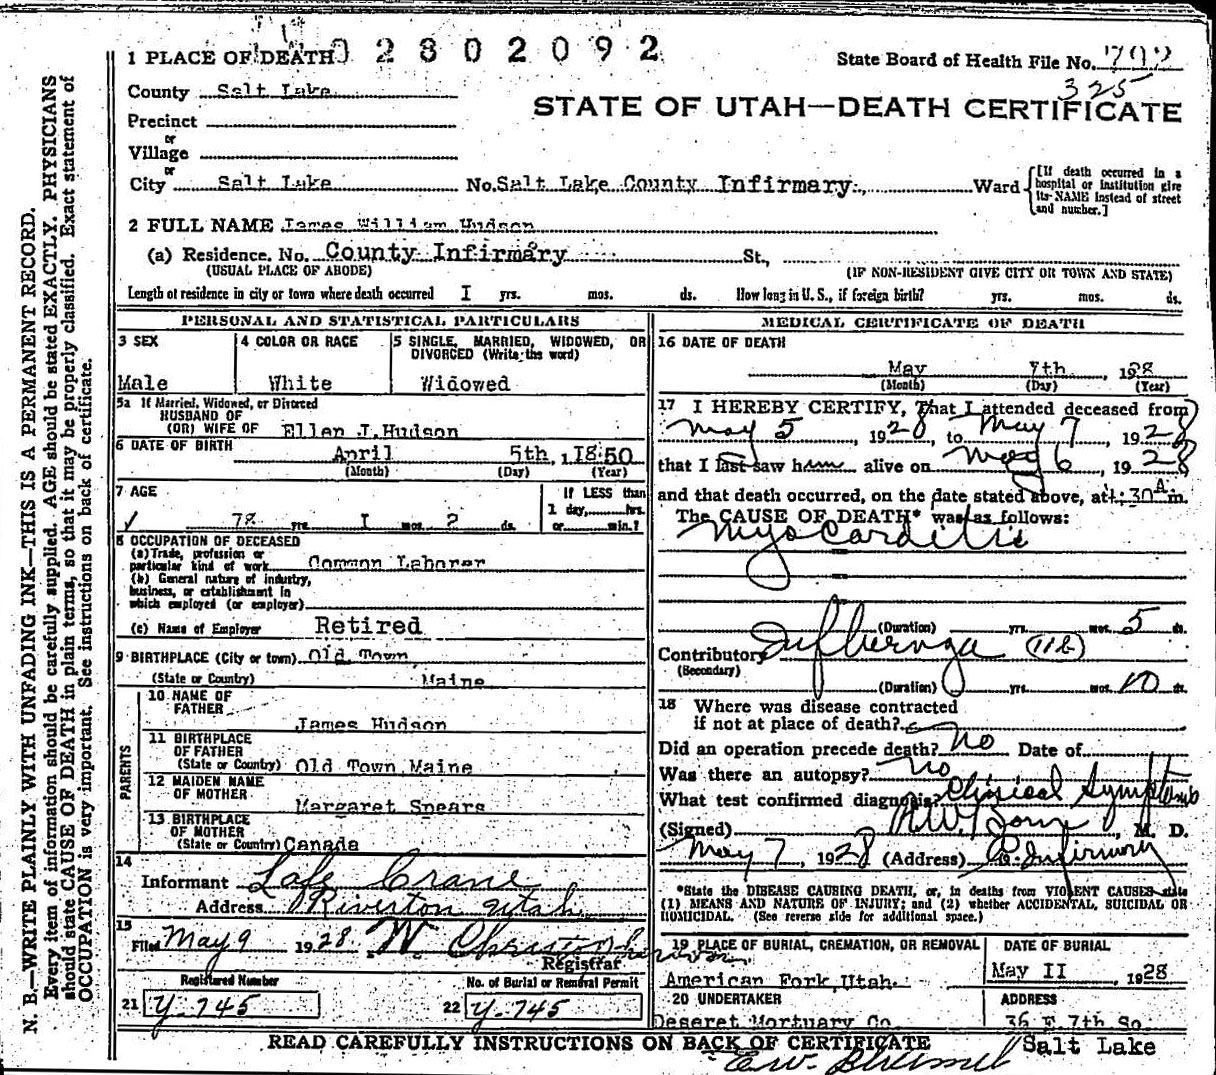 N. B.—WRITE PLAINLY WITH UNFADING INK—THIS IS A PERMANENT RECORD.
Every item of information should be carefully supplied. AGE should be stated EXACTLY. PHYSICIANS
should state CAUSE OF DEATH in plain terms, so that it may be properly classified. Exact statement of
OCCUPATION is very important. See instructions on back of certificate.
02802092
1 PLACE OF DEATH
State Board of Health File No. 792
325
County Salt Lake
STATE OF UTAH—DEATH CERTIFICATE
Precinct
or
Village
or
City Salt Lake No. Salt Lake County Infirmary., Ward
[If death occurred in a
hospital or institution give
its NAME instead of street
and number.]
2 FULL NAME James William Hudson
(a) Residence. No. County Infirmary St.,
(USUAL PLACE OF ABODE) (IF NON-RESIDENT GIVE CITY OR TOWN AND STATE)
Length of residence in city or town where death occurred I yrs. mos. ds. How long in U. S., if foreign birth? yrs. mos. ds.
PERSONAL AND STATISTICAL PARTICULARS
3 SEX
Male
4 COLOR OR RACE
White
5 SINGLE, MARRIED, WIDOWED, OR
DIVORCED (Write the word)
Widowed
5a If Married, Widowed, or Divorced
HUSBAND OF
(OR) WIFE OF Ellen J. Hudson
6 DATE OF BIRTH April 5th, 1850
(Month) (Day) (Year)
7 AGE
78 yrs. I mos. 2 ds.
If LESS than
1 day, hrs.
or min.?
8 OCCUPATION OF DECEASED
(a) Trade, profession or
particular kind of work Common Laborer
(b) General nature of industry,
business, or establishment in
which employed (or employer)
(c) Name of Employer Retired
9 BIRTHPLACE (City or town) Old Town
(State or Country) Maine
PARENTS
10 NAME OF
FATHER James Hudson
11 BIRTHPLACE
OF FATHER
(State or Country) Old Town, Maine
12 MAIDEN NAME
OF MOTHER Margaret Spears
13 BIRTHPLACE
OF MOTHER
(State or Country) Canada
14
Informant Lafe Crane
Address Riverton Utah
15
Filed May 9 1928
Registrar
Registered Number
21 Y-745
No. of Burial or Removal Permit
22 Y-745
MEDICAL CERTIFICATE OF DEATH
16 DATE OF DEATH
May 7th, 1928
(Month) (Day) (Year)
17 I HEREBY CERTIFY, That I attended deceased from
May 5, 1928, to May 7, 1928
that I last saw him alive on May 6, 1928
and that death occurred, on the date stated above, at 1:30 A m.
The CAUSE OF DEATH* was as follows:
Myocarditis
(Duration) yrs. mos. 5 ds.
Contributory Influenza (11B)
(Secondary)
(Duration) yrs. mos. 10 ds.
18 Where was disease contracted
if not at place of death?
Did an operation precede death? No Date of
Was there an autopsy? No
What test confirmed diagnosis? Clinical Symptoms
(Signed) , M. D.
May 7, 1928 (Address) Co. Infirmary
*State the DISEASE CAUSING DEATH, or, in deaths from VIOLENT CAUSES state
(1) MEANS AND NATURE OF INJURY; and (2) whether ACCIDENTAL, SUICIDAL OR
HOMICIDAL. (See reverse side for additional space.)
19 PLACE OF BURIAL, CREMATION, OR REMOVAL
American Fork, Utah.
DATE OF BURIAL
May II 1928
20 UNDERTAKER
Deseret Mortuary Co.
ADDRESS
36 E 7th So.
Salt Lake
READ CAREFULLY INSTRUCTIONS ON BACK OF CERTIFICATE